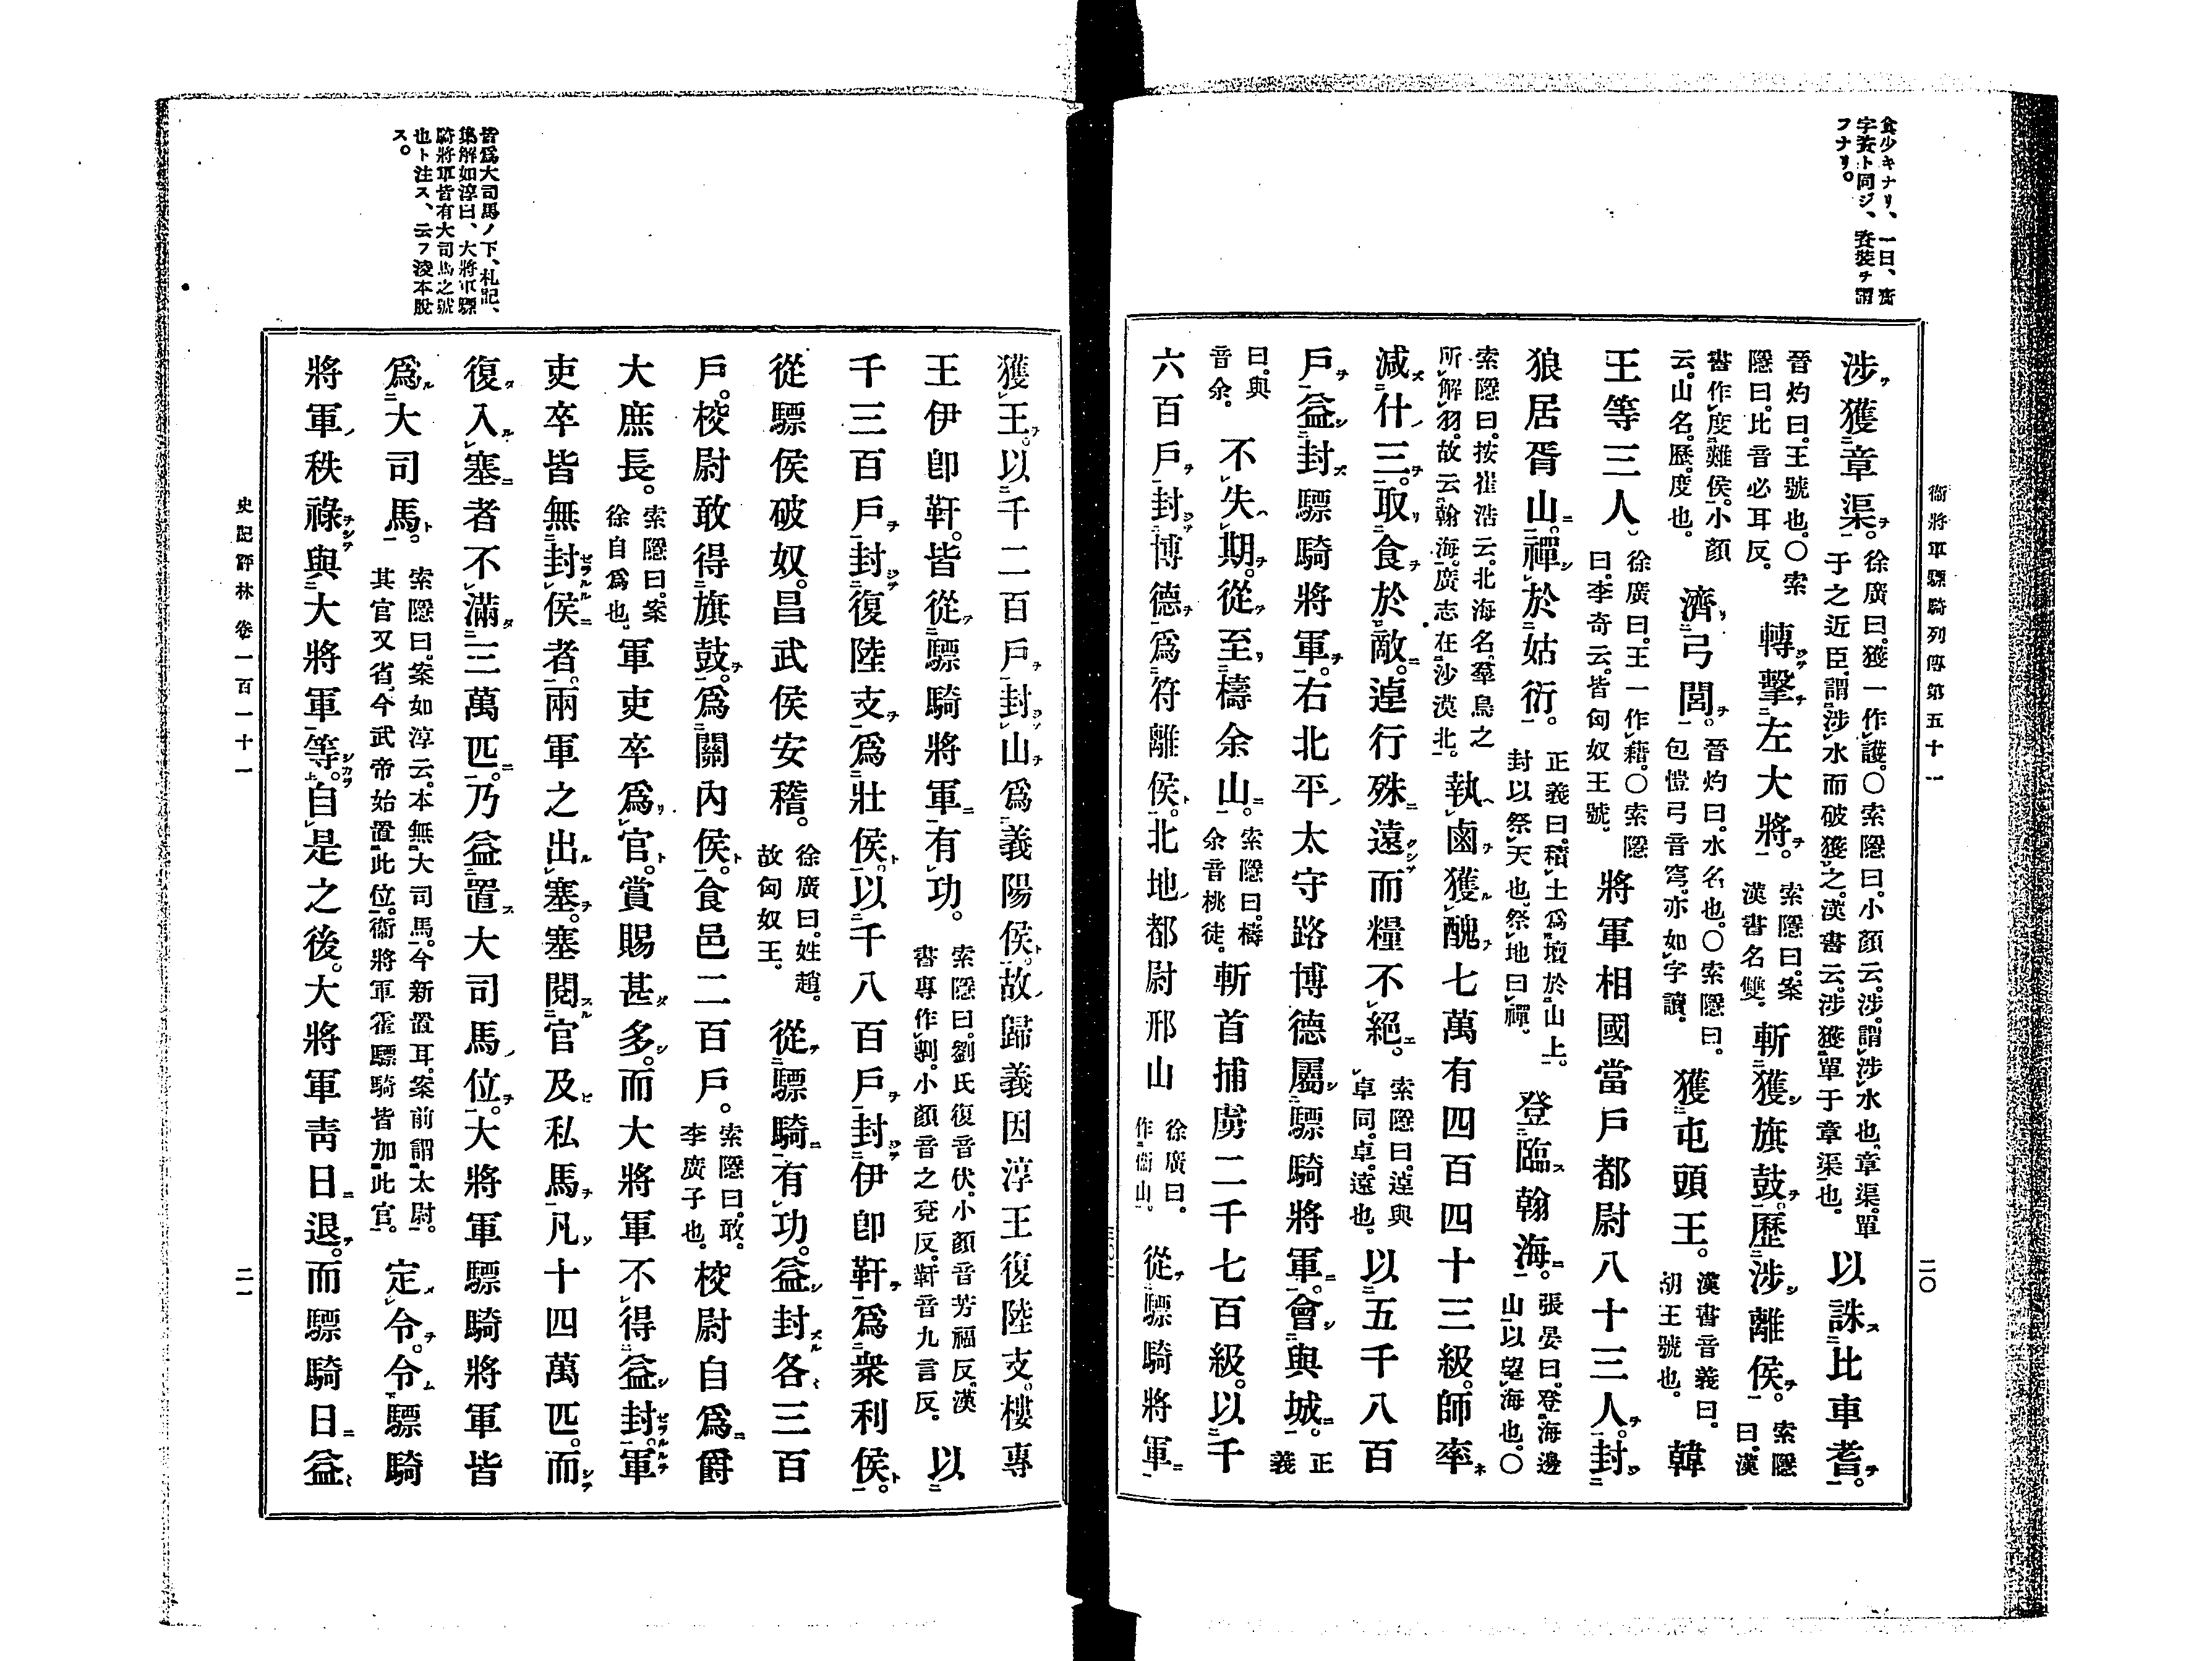 衞將軍驃騎列傳第五十一
二〇
食少キナリ、一曰、齎
字、裝ト同ジ、資裝チ謂
フナリ。
涉獲章渠。徐廣曰。獲一作護。〇索隱曰。小顏云。涉。謂涉水也。章渠。單
于之近臣。謂涉水而破獲之。漢書云。涉獲單于章渠也。以誅比車耆。
晉灼曰。王號也。〇索
隱曰。比音必耳反。轉擊左大將。索隱曰。案
漢書名雙。斬獲旗鼓。歷涉離侯。索隱
曰。漢
書作度難侯。小顏
云。山名。歷。度也。濟弓閭。晉灼曰。水名也。〇索隱曰。
包愷弓音穹。亦如字讀。獲屯頭王。漢書音義曰。
胡王號也。韓
王等三人。徐廣曰。王一作藉。〇索隱
曰。李奇云。皆匈奴王號。將軍相國當戶都尉八十三人。封
狼居胥山。禪於姑衍。正義曰。積土爲壇於山上。
封以祭天也。祭地曰禪。登臨翰海。張晏曰。登海邊
山以望海也。〇
索隱曰。按崔浩云。北海名。羣鳥之
所解羽。故云翰海。廣志在沙漠北。執鹵獲醜七萬有四百四十三級。師率
減什三。取食於敵。逴行殊遠而糧不絕。索隱曰。逴與
卓同。卓。遠也。以五千八百
戶益封驃騎將軍。右北平太守路博德屬驃騎將軍。會與城。正
義
曰。與
音余。不失期。從至檮余山。索隱曰。檮
余音桃徒。斬首捕虜二千七百級。以千
六百戶封博德爲符離侯。北地都尉邢山徐廣曰。
作衞山。從驃騎將軍
皆爲大司馬ノ下、札記、
集解如淳曰、大將軍驃
騎將軍皆有大司馬之號
也ト注ス、云フ淩本脫
ス。
獲王。以千二百戶封山爲義陽侯。故歸義因淳王復陸支。樓專
王伊卽靬。皆從驃騎將軍有功。索隱曰。劉氏復音伏。小顏音芳福反。漢
書專作剸。小顏音之兗反。靬音九言反。以
千三百戶封復陸支爲壯侯。以千八百戶封伊卽靬爲衆利侯。
從驃侯破奴。昌武侯安稽。徐廣曰。姓趙。
故匈奴王。從驃騎有功。益封各三百
戶。校尉敢得旗鼓。爲關內侯。食邑二百戶。索隱曰。敢。
李廣子也。校尉自爲爵
大庶長。索隱曰。案
徐自爲也。軍吏卒爲官。賞賜甚多。而大將軍不得益封。軍
吏卒皆無封侯者。兩軍之出塞。塞閱官及私馬凡十四萬匹。而
復入塞者不滿三萬匹。乃益置大司馬位。大將軍驃騎將軍皆
爲大司馬。索隱曰。案如淳云。本無大司馬。今新置耳。案前謂太尉。
其官又省。今武帝始置此位。衞將軍霍驃騎皆加此官。定令。令驃騎
將軍秩祿與大將軍等。自是之後。大將軍靑日退。而驃騎日益
史記評林 卷一百一十一
二一